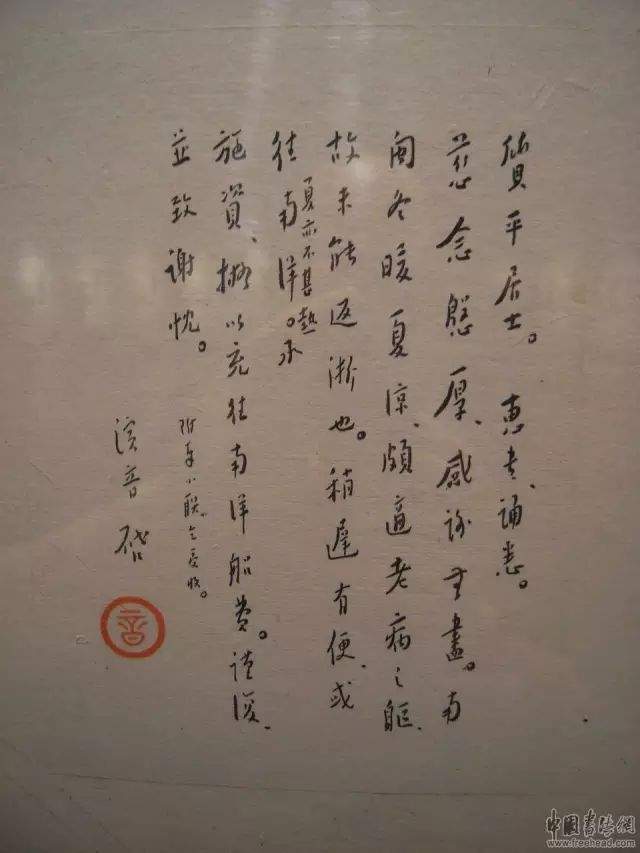 質平居士。惠書、誦悉。
慈念慇厚、感謝无盡。南
閩冬暖夏涼、頗適老病之軀、
故未能返浙也。稍遲有便、或
往南洋。承
夏亦不甚熱
施資、擬以充往南洋船費。謹復、
並致謝忱。
附奉小聯、乞受收。
演音 啓
中國書法網
www.freehead.com